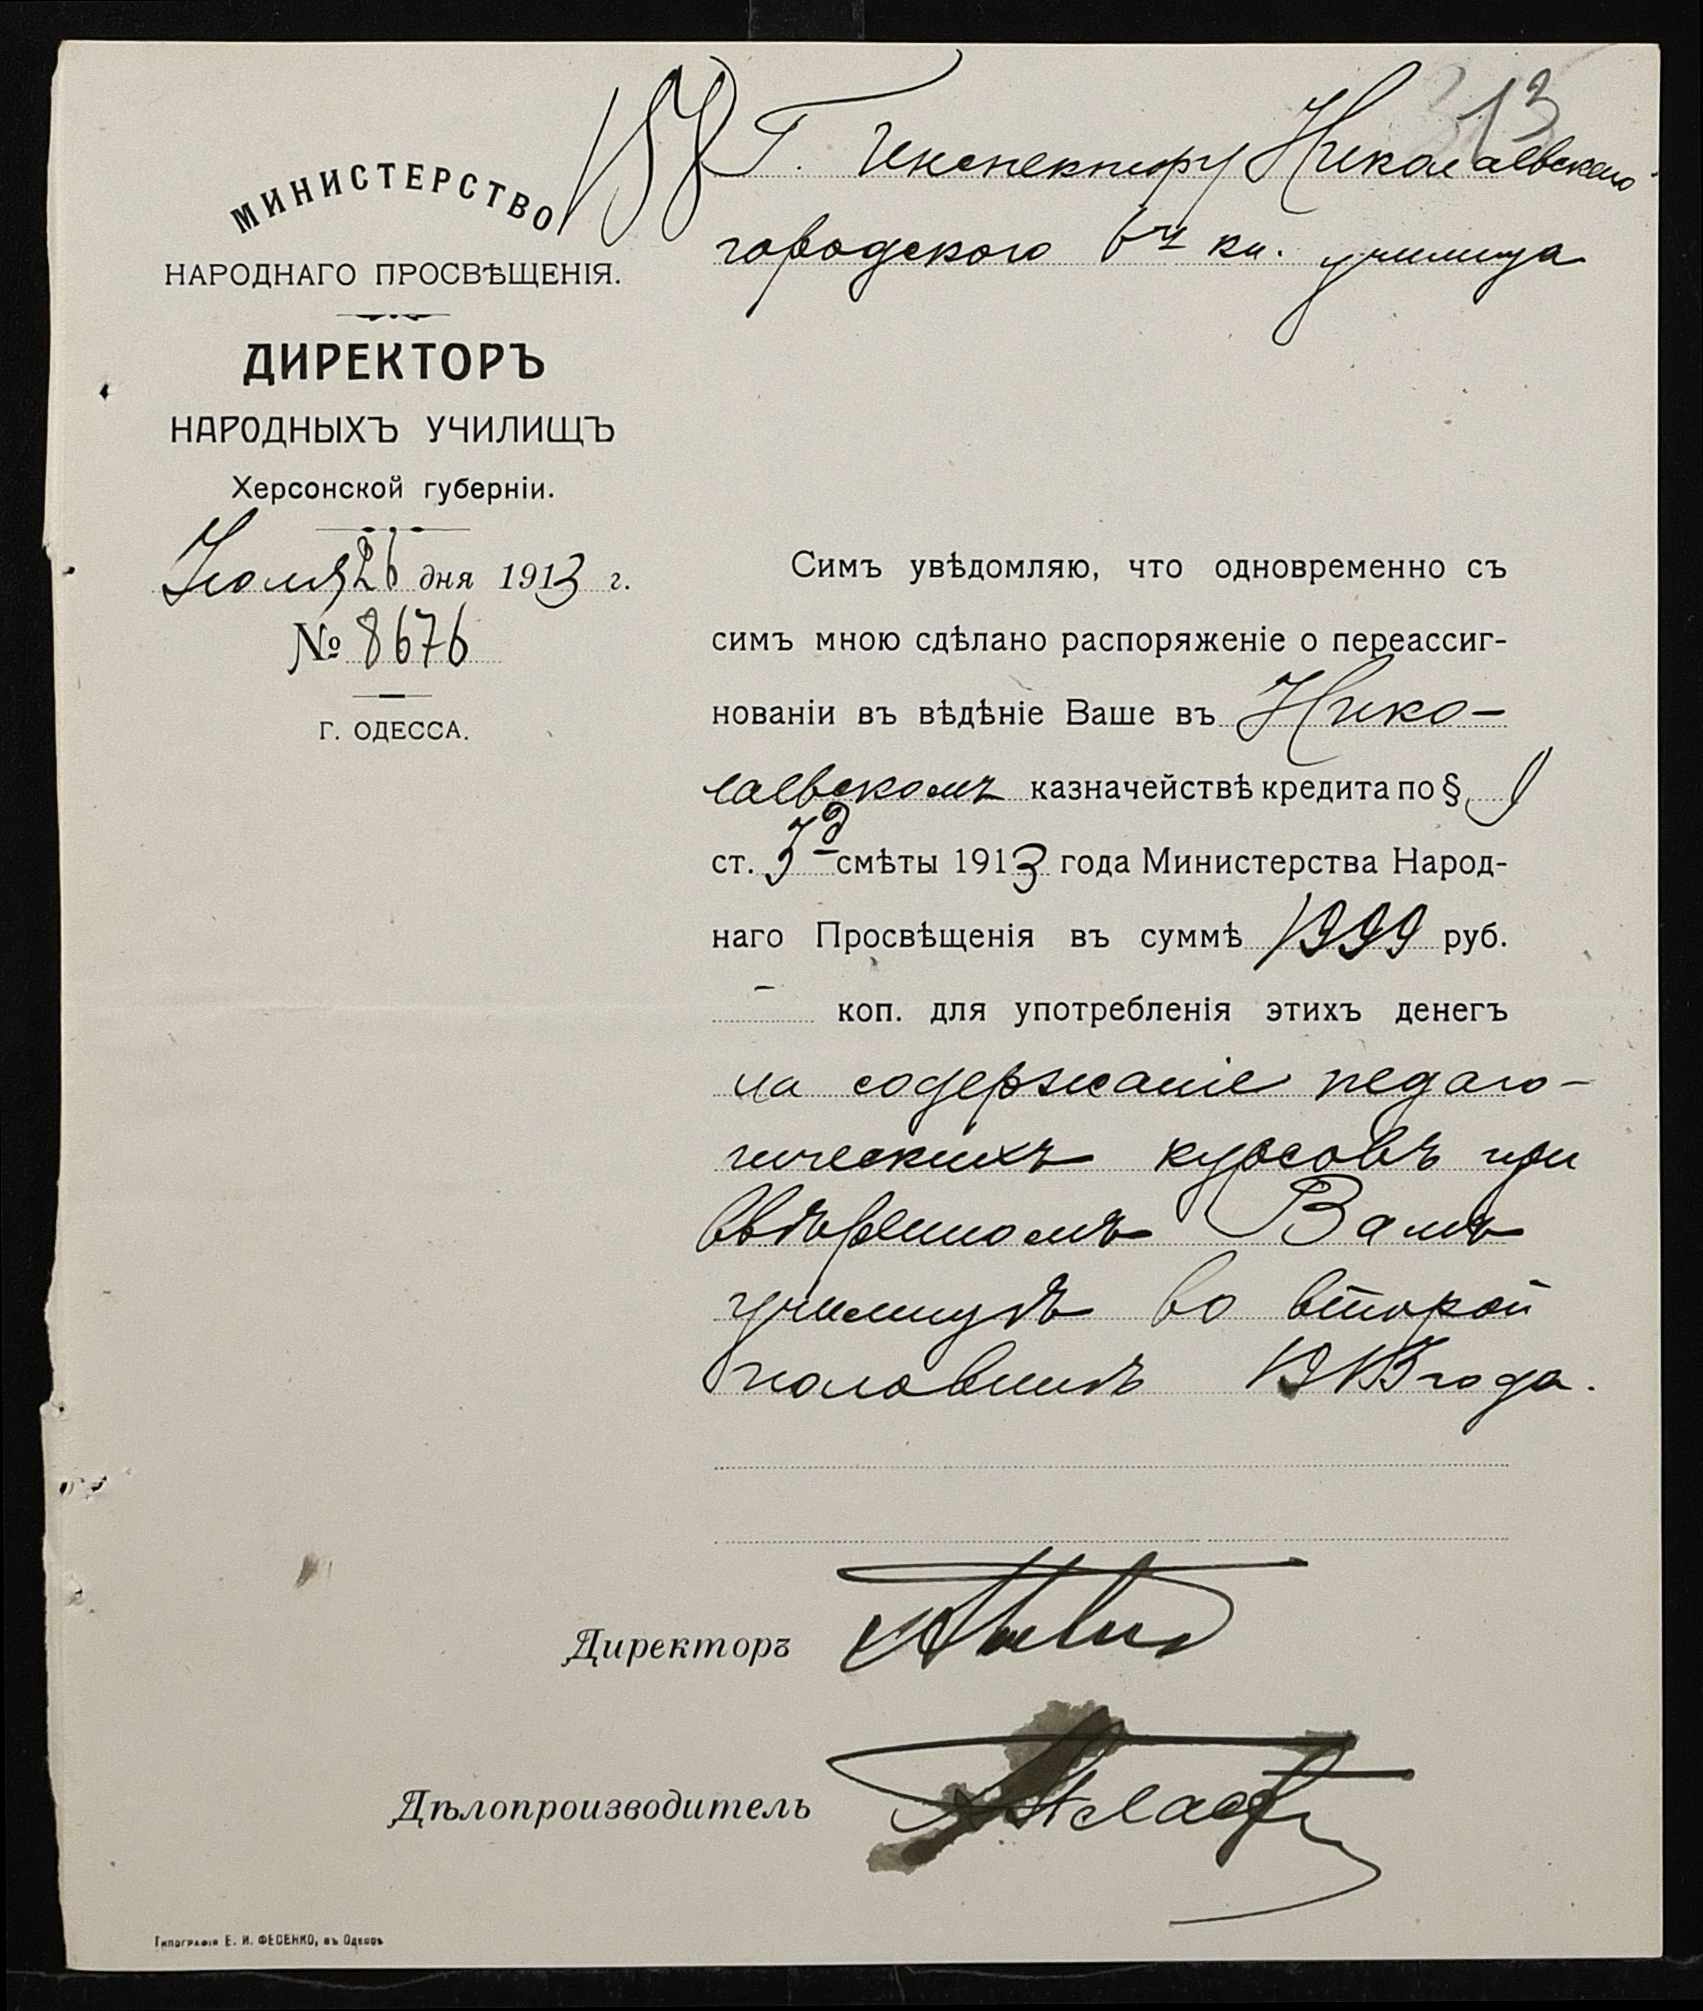 158
Г. Инспектору Николаевскаго
13
городского 6ти кл. училища
МИНИСТЕРСТВО
НАРОДНАГО ПРОСВѢЩЕНІЯ.
ДИРЕКТОРЪ
НАРОДНЫХЪ УЧИЛИЩЪ
Херсонской губерніи.
Іюля 26 дня 1913 г.
№ 8676
Г. ОДЕССА.
Симъ увѣдомляю, что одновременно съ
симъ мною сдѣлано распоряженіе о переассиг-
нованіи въ вѣдѣніе Ваше въ Нико-
лаевскомъ казначействѣ кредита по §
ст. смѣты 1913 года Министерства Народ-
наго Просвѣщенія въ суммѣ 1999 руб.
— коп. для употребленія этихъ денегъ
на содержаніе педаго-
гическихъ курсовъ при
ввѣренномъ Вамъ
училищѣ во второй
половинѣ 1913 года.
Директоръ
Дѣлопроизводитель
Типографія Е. И. ФЕСЕНКО, въ Одессѣ